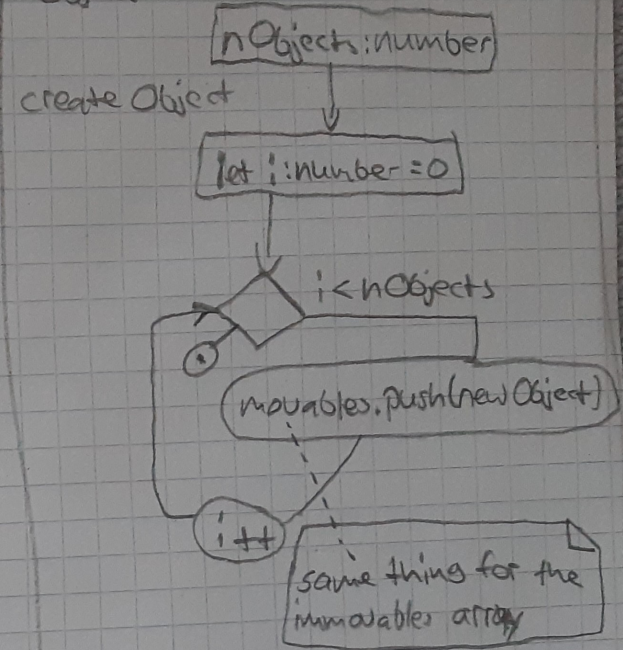 nObjects:number
create Object
let i:number=0
i<nObjects
movables.push(new Object)
i++
same thing for the
immovables array